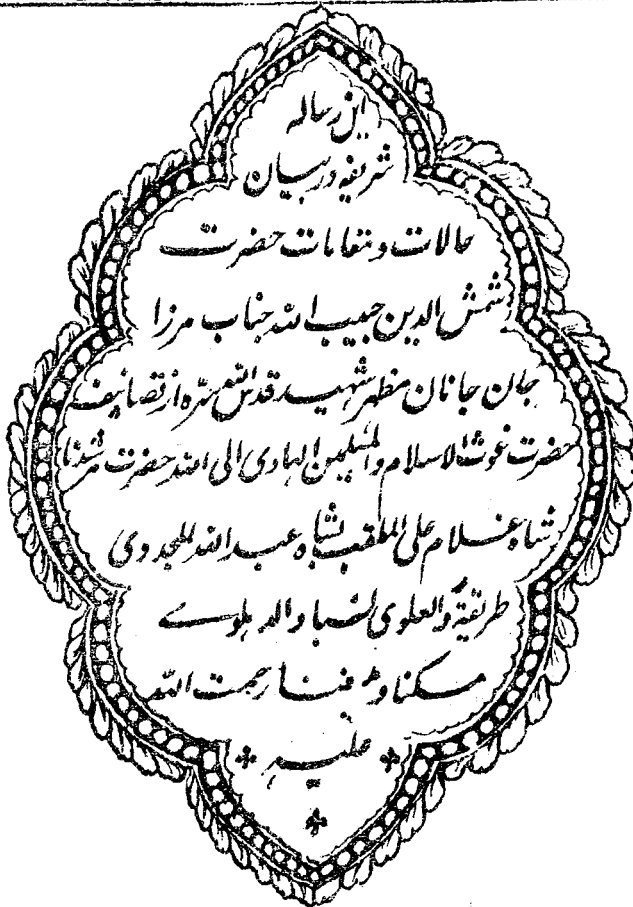 این رساله
شریفه در بیان
حالات و مقامات حضرت
شمش الدین حبیب الله جناب مرزا
جان جانان مظهر شهید قدس الله سره از تصانیف
حضرت غوث الاسلام والمسلمین الهادی الی الله حضرت مرشدنا
شاه غلام علی الملقب بشاه عبد الله المجددی
طریقةً والعلوی نسبا والدهلوے
مسکنا و مدفنا رحمت الله
علیه